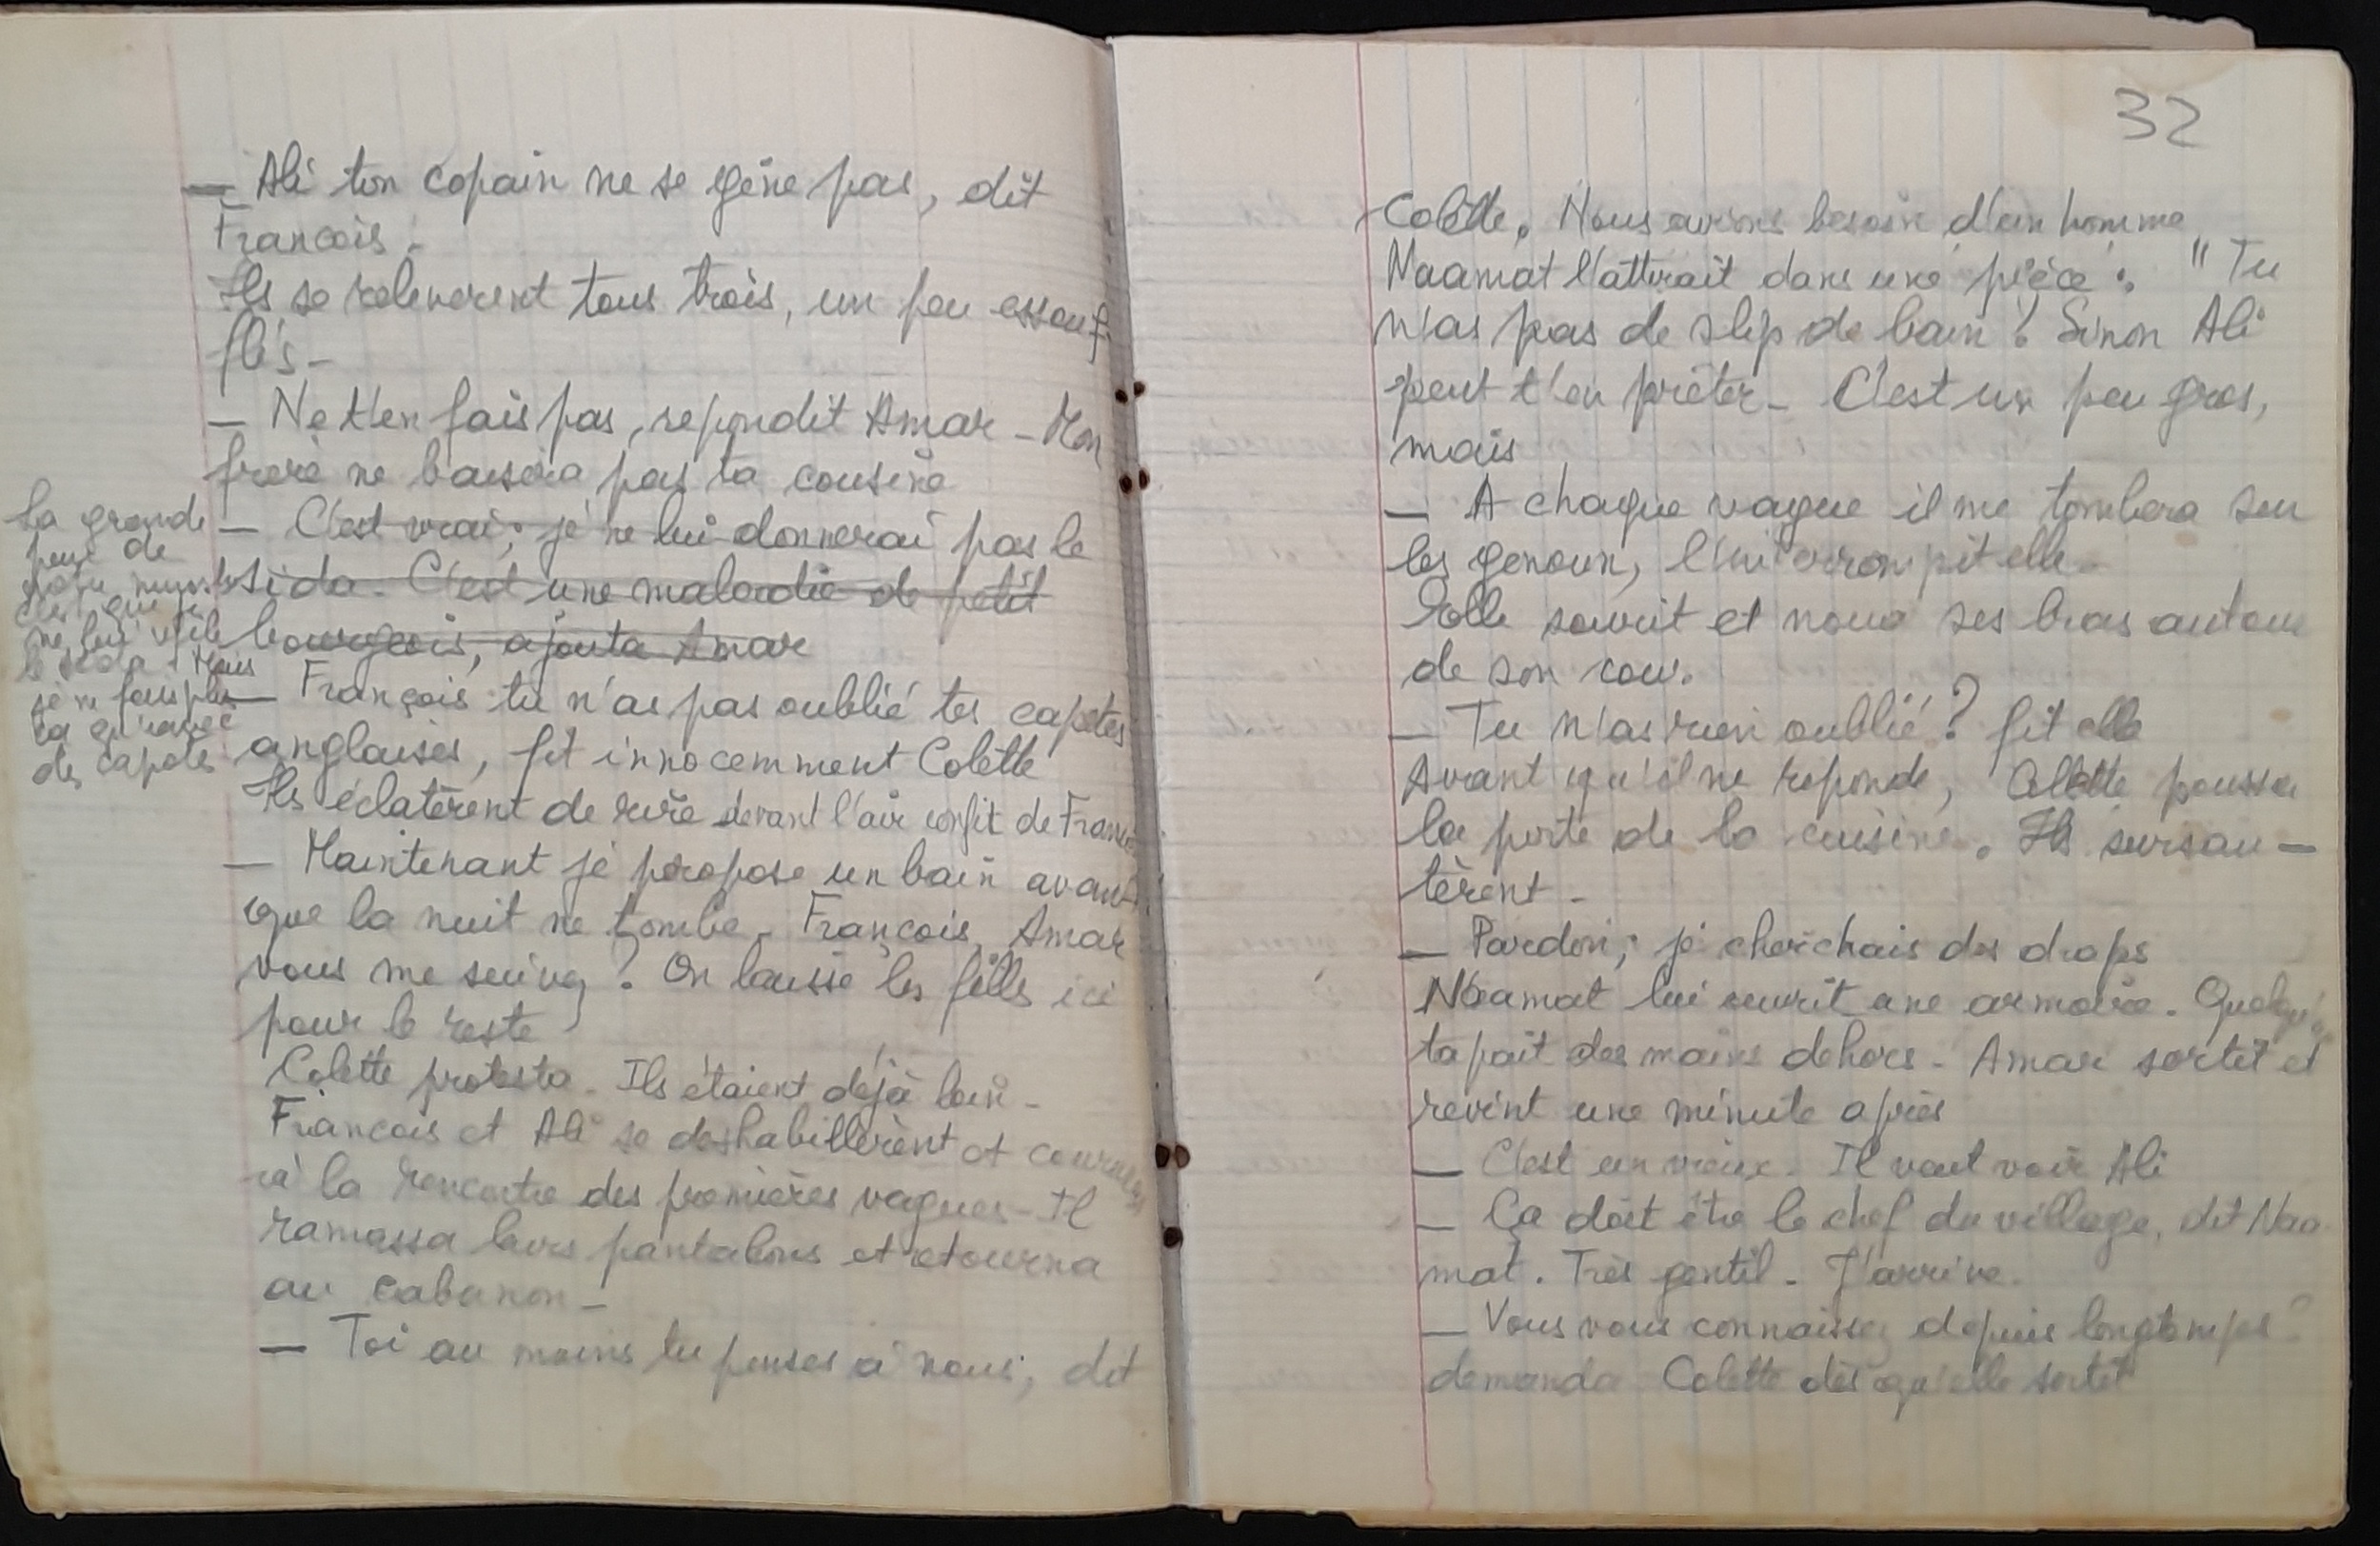 — Ali ton copain ne se gêne pas, dit
François.
Ils se releverent tous trois, un peu essouf
flés -
— Ne t'en fais pas, repondit Amar - Mon
frere ne baisera pas ta cousine
— C'est vrai; je ne lui donnerai pas le
sida. C'est une maladie de petit
bourgeois, ajouta Amar
La grande
peur de
c'est que je
ne lui file
le sida. Mais
je ne fais plus
ça qu'avec
des capotes
— François tu n'as pas oublié tes capotes
anglaises, fit innocemment Colette
Ils éclatèrent de rire devant l'air confit de
— Maintenant je propose un bain avant
que la nuit ne tombe. François, Amar
vous me suivez? On laisse les filles ici
pour le reste
Colette protesta. Ils étaient déjà loin -
Francois et Ali se deshabillèrent et
à la rencontre des premières vagues - Il
ramassa leurs pantalons et retourna
au cabanon -
— Toi au moins tu penses à nous, dit
32
Colette. Nous avions besoin d'un homme
Naamat l'attirait dans une pièce : " Tu
n'as pas de slip de bain? Sinon Ali
peut t'en prêter - C'est un peu gros,
mais
— A chaque vague il me tombera sur
les genoux, l'interrompit elle.
Elle sourit et noua ses bras autour
de son cou.
— Tu n'as rien oublié? fit elle
Avant qu'il ne reponde, Colette poussa
la porte de la cuisine. Ils sursau —
tèrent -
— Pardon; je cherchais des draps
Naamat lui ouvrit une armoire. Quelqu'un
tapait des mains dehors - Amar sortit et
revint une minute après
— C'est un vieux. Il veut voir Ali
— Ça doit être le chef du village, dit Naa
mat. Très gentil - J'arrive.
— Vous vous connaissez depuis longtemps?
demanda Colette dès qu'elle sortit